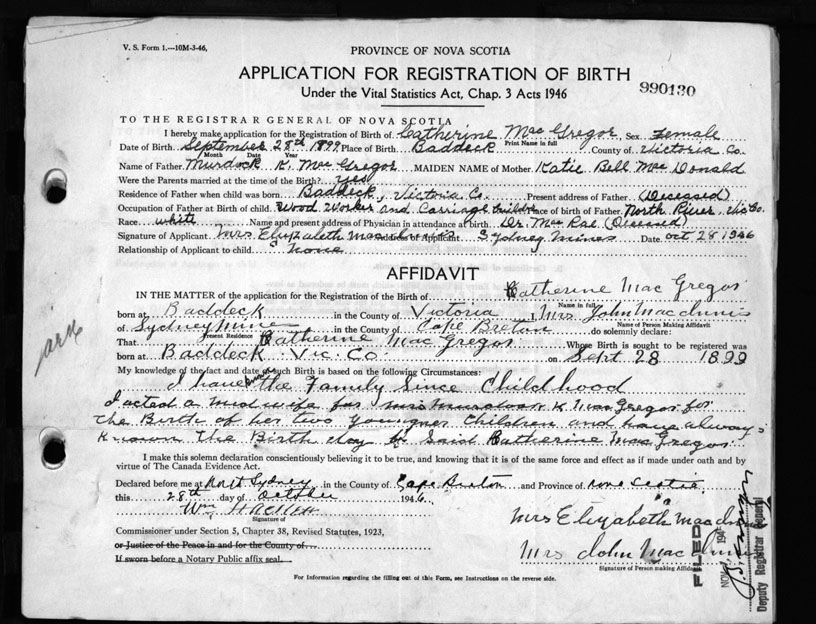 V. S. Form 1.—10M-3-46,
PROVINCE OF NOVA SCOTIA
APPLICATION FOR REGISTRATION OF BIRTH
990130
Under the Vital Statistics Act, Chap. 3 Acts 1946
TO THE REGISTRAR GENERAL OF NOVA SCOTIA
I hereby make application for the Registration of Birth of Catherine Mac Gregor, Sex Female
Print Name in full
Date of Birth September 28th 1899 Place of Birth Baddeck County of Victoria Co.
Month Date Year
Name of Father Murdock K. Mac Gregor MAIDEN NAME of Mother Katie Bell Mac Donald
Were the Parents married at the time of the Birth? yes
Residence of Father when child was born Baddeck, Victoria Co. Present address of Father (Deceased)
Occupation of Father at Birth of child Wood Worker and Carriage builder Place of Birth of Father North River, Vic Co.
Race white Name and present address of Physician in attendance at birth Dr. Mac Rae (Deceased)
Signature of Applicant Mrs Elizabeth Address of Applicant Sydney Mines Date Oct 28 1946
Relationship of Applicant to child none
AFFIDAVIT
IN THE MATTER of the application for the Registration of Birth of Katherine Mac Gregor
Name in full
born at Baddeck in the County of Victoria I, Mrs John Mac Innis
Name of Person Making Affidavit
of Sydney Mines in the County of Cape Breton do solemnly declare:
Present Residence
That Katherine Mac Gregor Whose Birth is sought to be registered was
born at Baddeck Vic. Co. on Sept 28 1899
My knowledge of the fact and date of such Birth is based on the following Circumstances:
I have known the Family Since Childhood
I acted a midwife for Mrs Murdock K Mac Gregor for
the Birth of her two younger Children and have always
known The Birth day of Said Katherine Mac Gregor
I make this solemn declaration conscientiously believing it to be true, and knowing that it is of the same force and effect as if made under oath and by
virtue of The Canada Evidence Act.
Declared before me at North Sydney in the County of Cape Breton and Province of Nova Scotia
this 28th day of October 1946.
Wm Hackett
Signature of
Mrs Elizabeth Mac Innis
Commissioner under Section 5, Chapter 38, Revised Statutes, 1923,
or Justice of the Peace in and for the County of
Mrs John Mac Innis
If sworn before a Notary Public affix seal.
Signature of Person making Affidavit
For Information regarding the filling out of this Form, see Instructions on the reverse side.
FILED
NOV
Deputy Registrar General